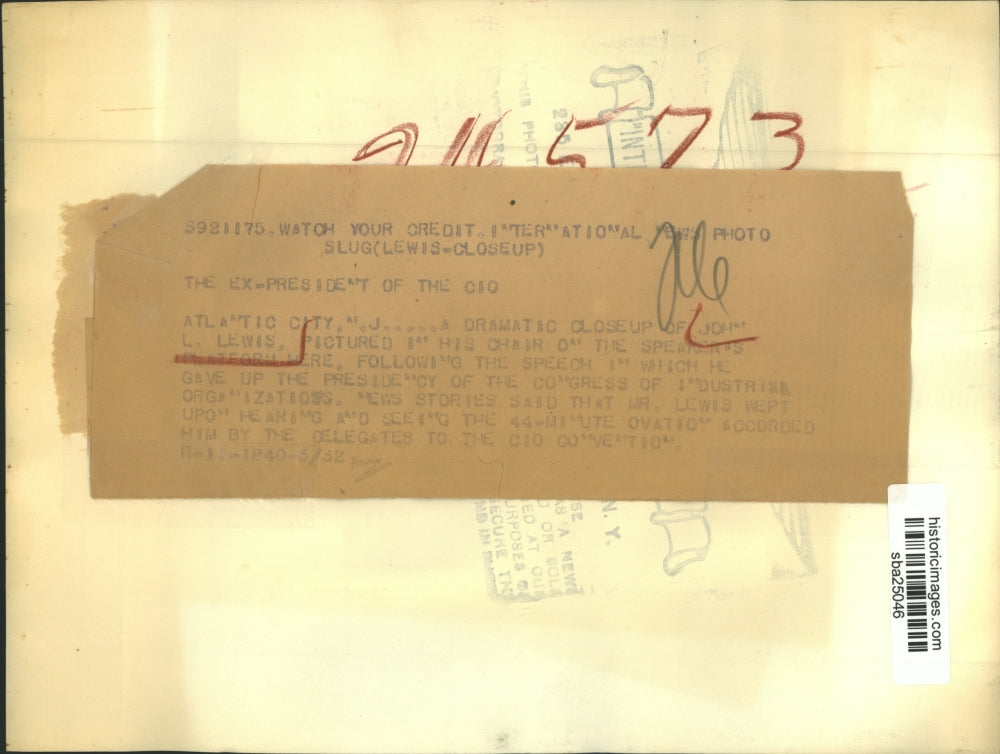 24573
S921175.WATCH YOUR CREDIT.INTERNATIONAL NEWS PHOTO
SLUG(LEWIS-CLOSEUP)
THE EX-PRESIDENT OF THE CIO
ATLANTIC CITY,N.J.....A DRAMATIC CLOSEUP OF JOHN
L. LEWIS, PICTURED IN HIS CHAIR ON THE SPEAKER'S
PLATFORM HERE, FOLLOWING THE SPEECH IN WHICH HE
GAVE UP THE PRESIDENCY OF THE CONGRESS OF INDUSTRIAL
ORGANIZATIONS. NEWS STORIES SAID THAT MR. LEWIS WEPT
UPON HEARING AND SEEING THE 44-MINUTE OVATION ACCORDED
HIM BY THE DELEGATES TO THE CIO CONVENTION.
R-I.-1840-5/32
N. Y.
AS A NEWS
ED AT OUR
URPOSES
SECURE
historicimages.com
sba25046